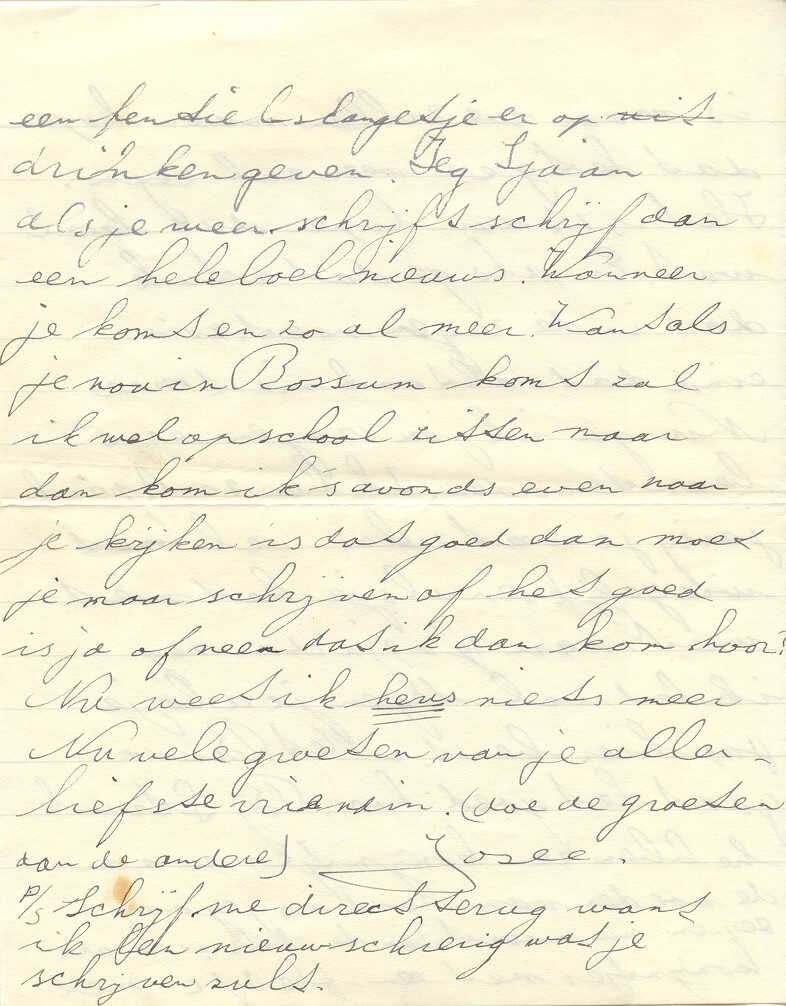 een fentielslangetje er op uit
drinken geven. Zeg Sjaan
als je weer schrijft schrijf dan
een heleboel nieuws. Wanneer
je komt en zo al meer. Want als
je nou in Bossum komt zal
ik wel op school zitten maar
dan kom ik 's avonds even naar
je kijken is dat goed dan moet
je maar schrijven of het goed
is ja of neen dat ik dan kom hoor?
Nu weet ik heus niets meer
Nu vele groeten van je aller-
liefste vriendin. (doe de groeten
aan de andere) Josee.
P/S Schrijf me direct terug want
ik ben nieuwschierig wat je
schrijven zult.